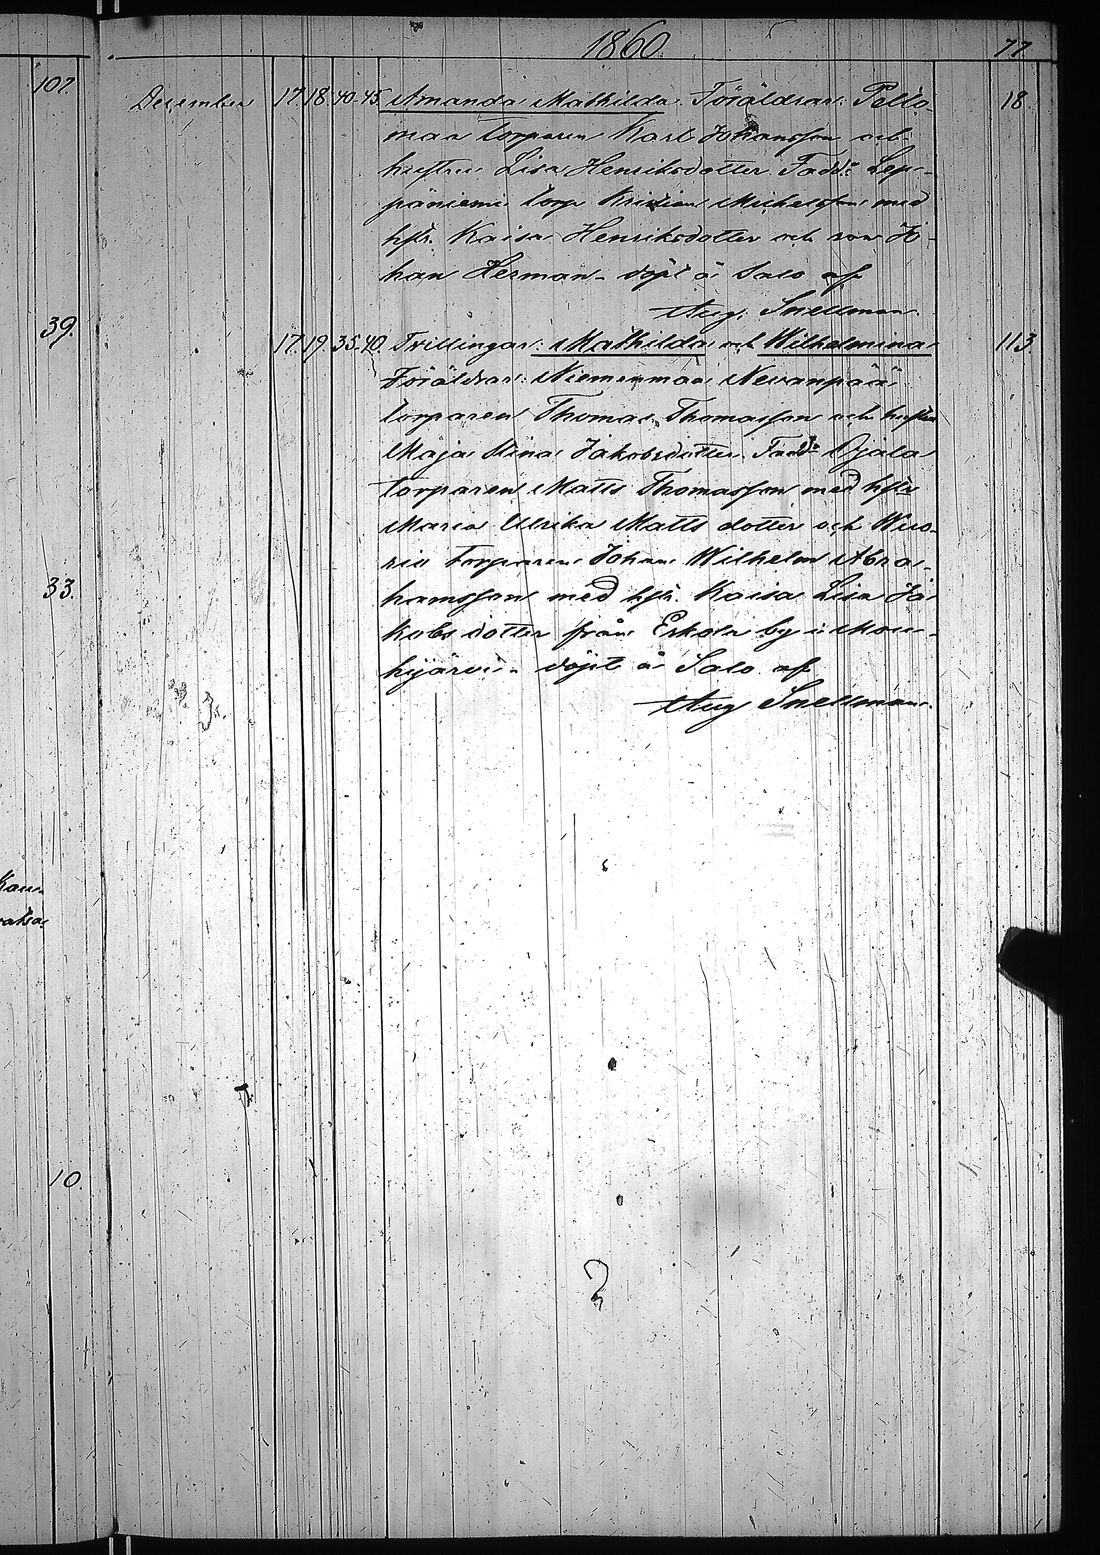 1860
77.
107.
December 17. 18. 40-45. Amanda Mathilda. Föräldrar: Pello- 18.
maa torparen Karl Johansson och
hustru Lisa Henriksdotter. Fadd: Lep-
päniemi torp. Kristian Michelsson med
hstr. Kaisa Henriksdotter och son Jo-
han Herman - döpt å Salo af
Aug. Snellman.
39.
17. 19. 35-40. Trillingar: Mathilda och Wilhelmina 113.
Föräldrar: Niemenmaa Nevanpää
torparen Thomas Thomasson och hustru
Maja Stina Jakobsdotter. Fadd: Ojala
torparen Matts Thomasson med hstr
Maria Ulrika Matts dotter och Wuo-
rio torparen Johan Wilhelm Abra-
33.
hamsson med hstr. Kaisa Lisa Ja-
kobs dotter från Eskola by i Mou-
hijärvi - döpt å Salo af
Aug Snellman.
Kau-
10.